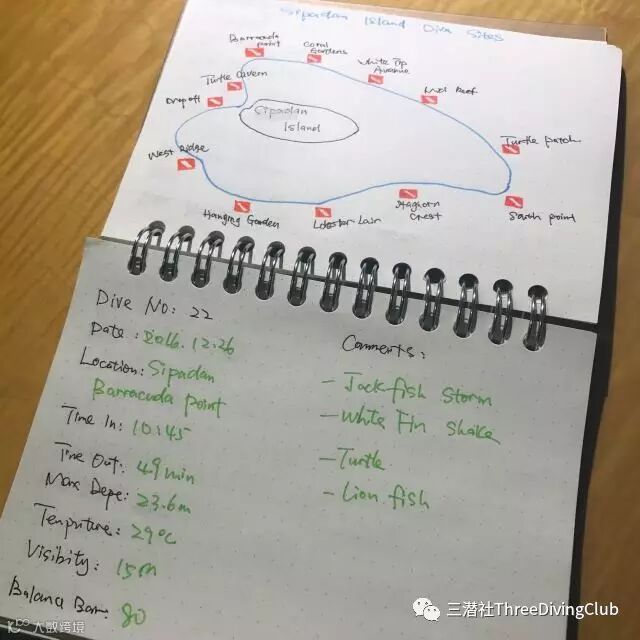 Sipadan Island Dive Sites
Barracuda point
Coral Gardens
White Tip Avenue
Mid Reef
Turtle Cavern
Drop off
Sipadan Island
Turtle patch
West Ridge
Hanging Garden
Lobster Lair
Staghorn Crest
South point
Dive No: 22
Date: 2016.12.26
Location: Sipadan
Barracuda point
Time In: 10:45
Time Out: 49min
Max Depe:
23.6m
Temputure: 29°C
Visibity: 15m
Balance Bar: 80
Comments:
- Jack fish storm
- White Fin Shake
- Turtle
- Lion fish
三潜社ThreeDivingClub
大数跨境